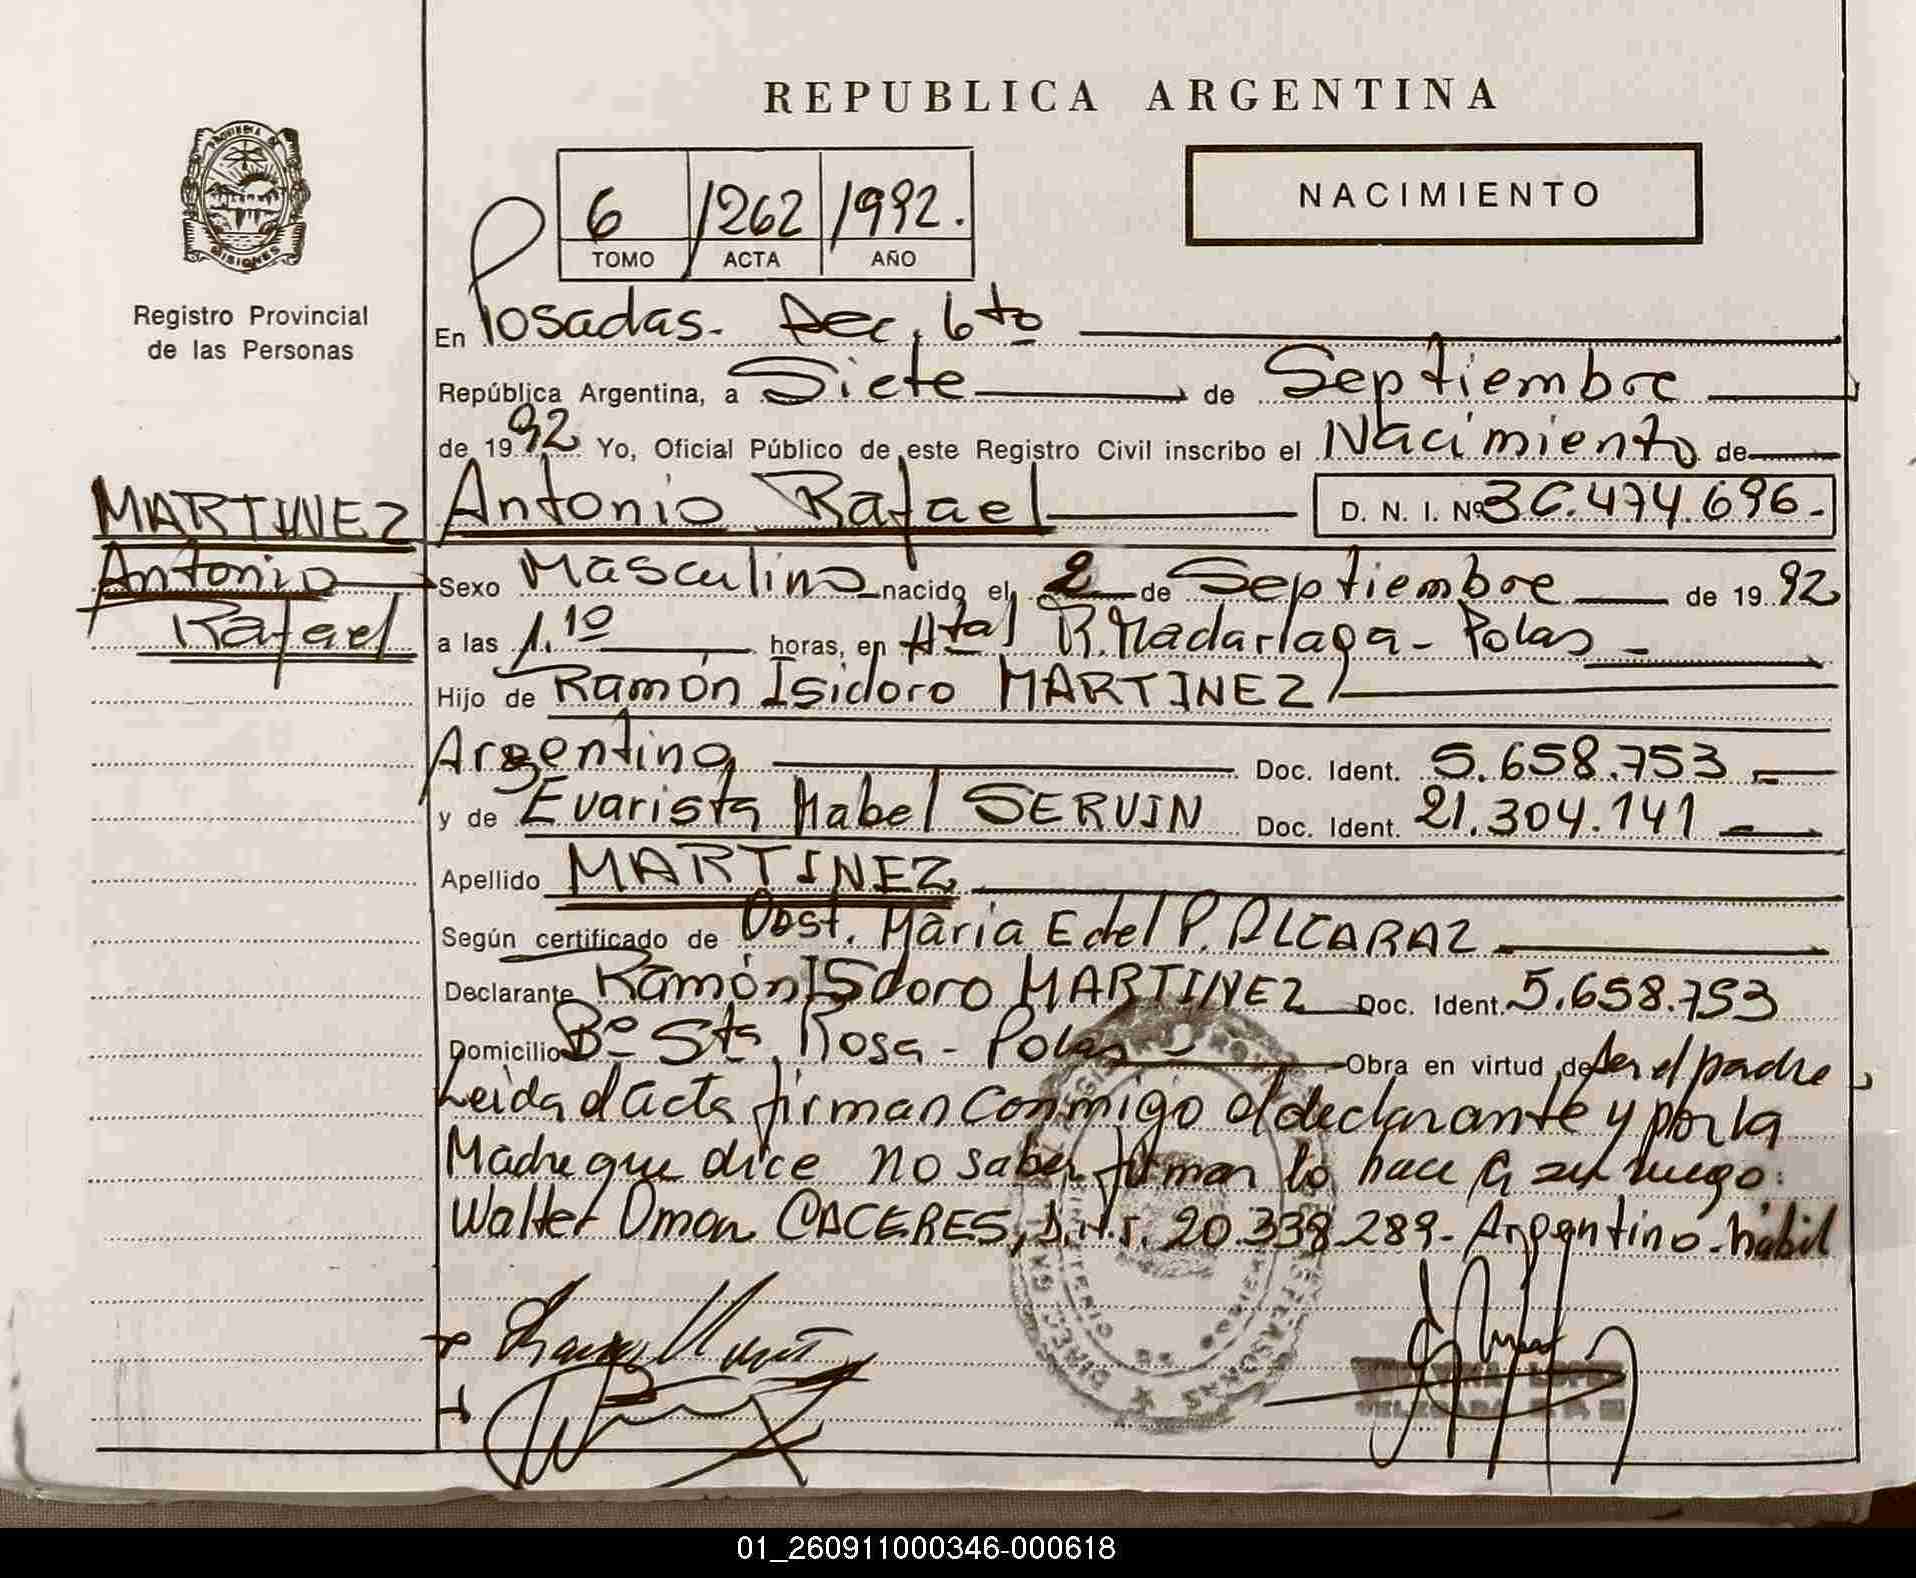 REPUBLICA ARGENTINA
NACIMIENTO
6 1262 1992.
TOMO ACTA AÑO
MISIONES
Registro Provincial
de las Personas
En Posadas. Sec. 6to
República Argentina, a Siete de Septiembre
de 1992 Yo, Oficial Público de este Registro Civil inscribo el Nacimiento de
MARTINEZ Antonio Rafael D. N. I. Nº 36.474.696.-
Antonio
Rafael
Sexo Masculino nacido el 2 de Septiembre de 1992
a las 1.10 horas, en Htal R. Madariaga - Pdas -
Hijo de Ramón Isidoro MARTINEZ
Argentino Doc. Ident. 5.658.753
y de Evarista Mabel SERVIN Doc. Ident. 21.304.141
Apellido MARTINEZ
Según certificado de Obst. Maria Edel P. ALCARAZ
Declarante Ramón ISdoro MARTINEZ Doc. Ident. 5.658.753
Domicilio Bº Sta. Rosa - Pdas - Obra en virtud de ser el padre
Leida el acta firman conmigo el declarante y por la
Madre que dice no saber firmar lo hace a su ruego:
Walter Omar CACERES, D.N.I. 20.338.289 - Argentino - hábil
LOPEZ
01_260911000346-000618